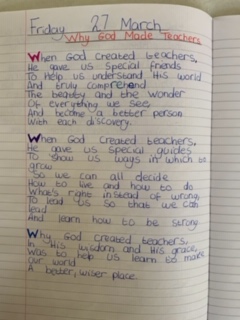 Friday 27 March
Why God Made Teachers
When God created teachers,
He gave us special friends
To help us understand His world
And truly comprehend
The beauty and the wonder
Of everything we see
And become a better person
With each discovery.
When God created teachers,
He gave us special guides
To show us ways in which to
grow
So we can all decide
How to live and how to do
What's right instead of wrong,
To lead us so that we can
lead
And learn how to be strong
Why God created teachers,
In His wisdom and His grace,
Was to help us learn to make
our world
A better, wiser place.